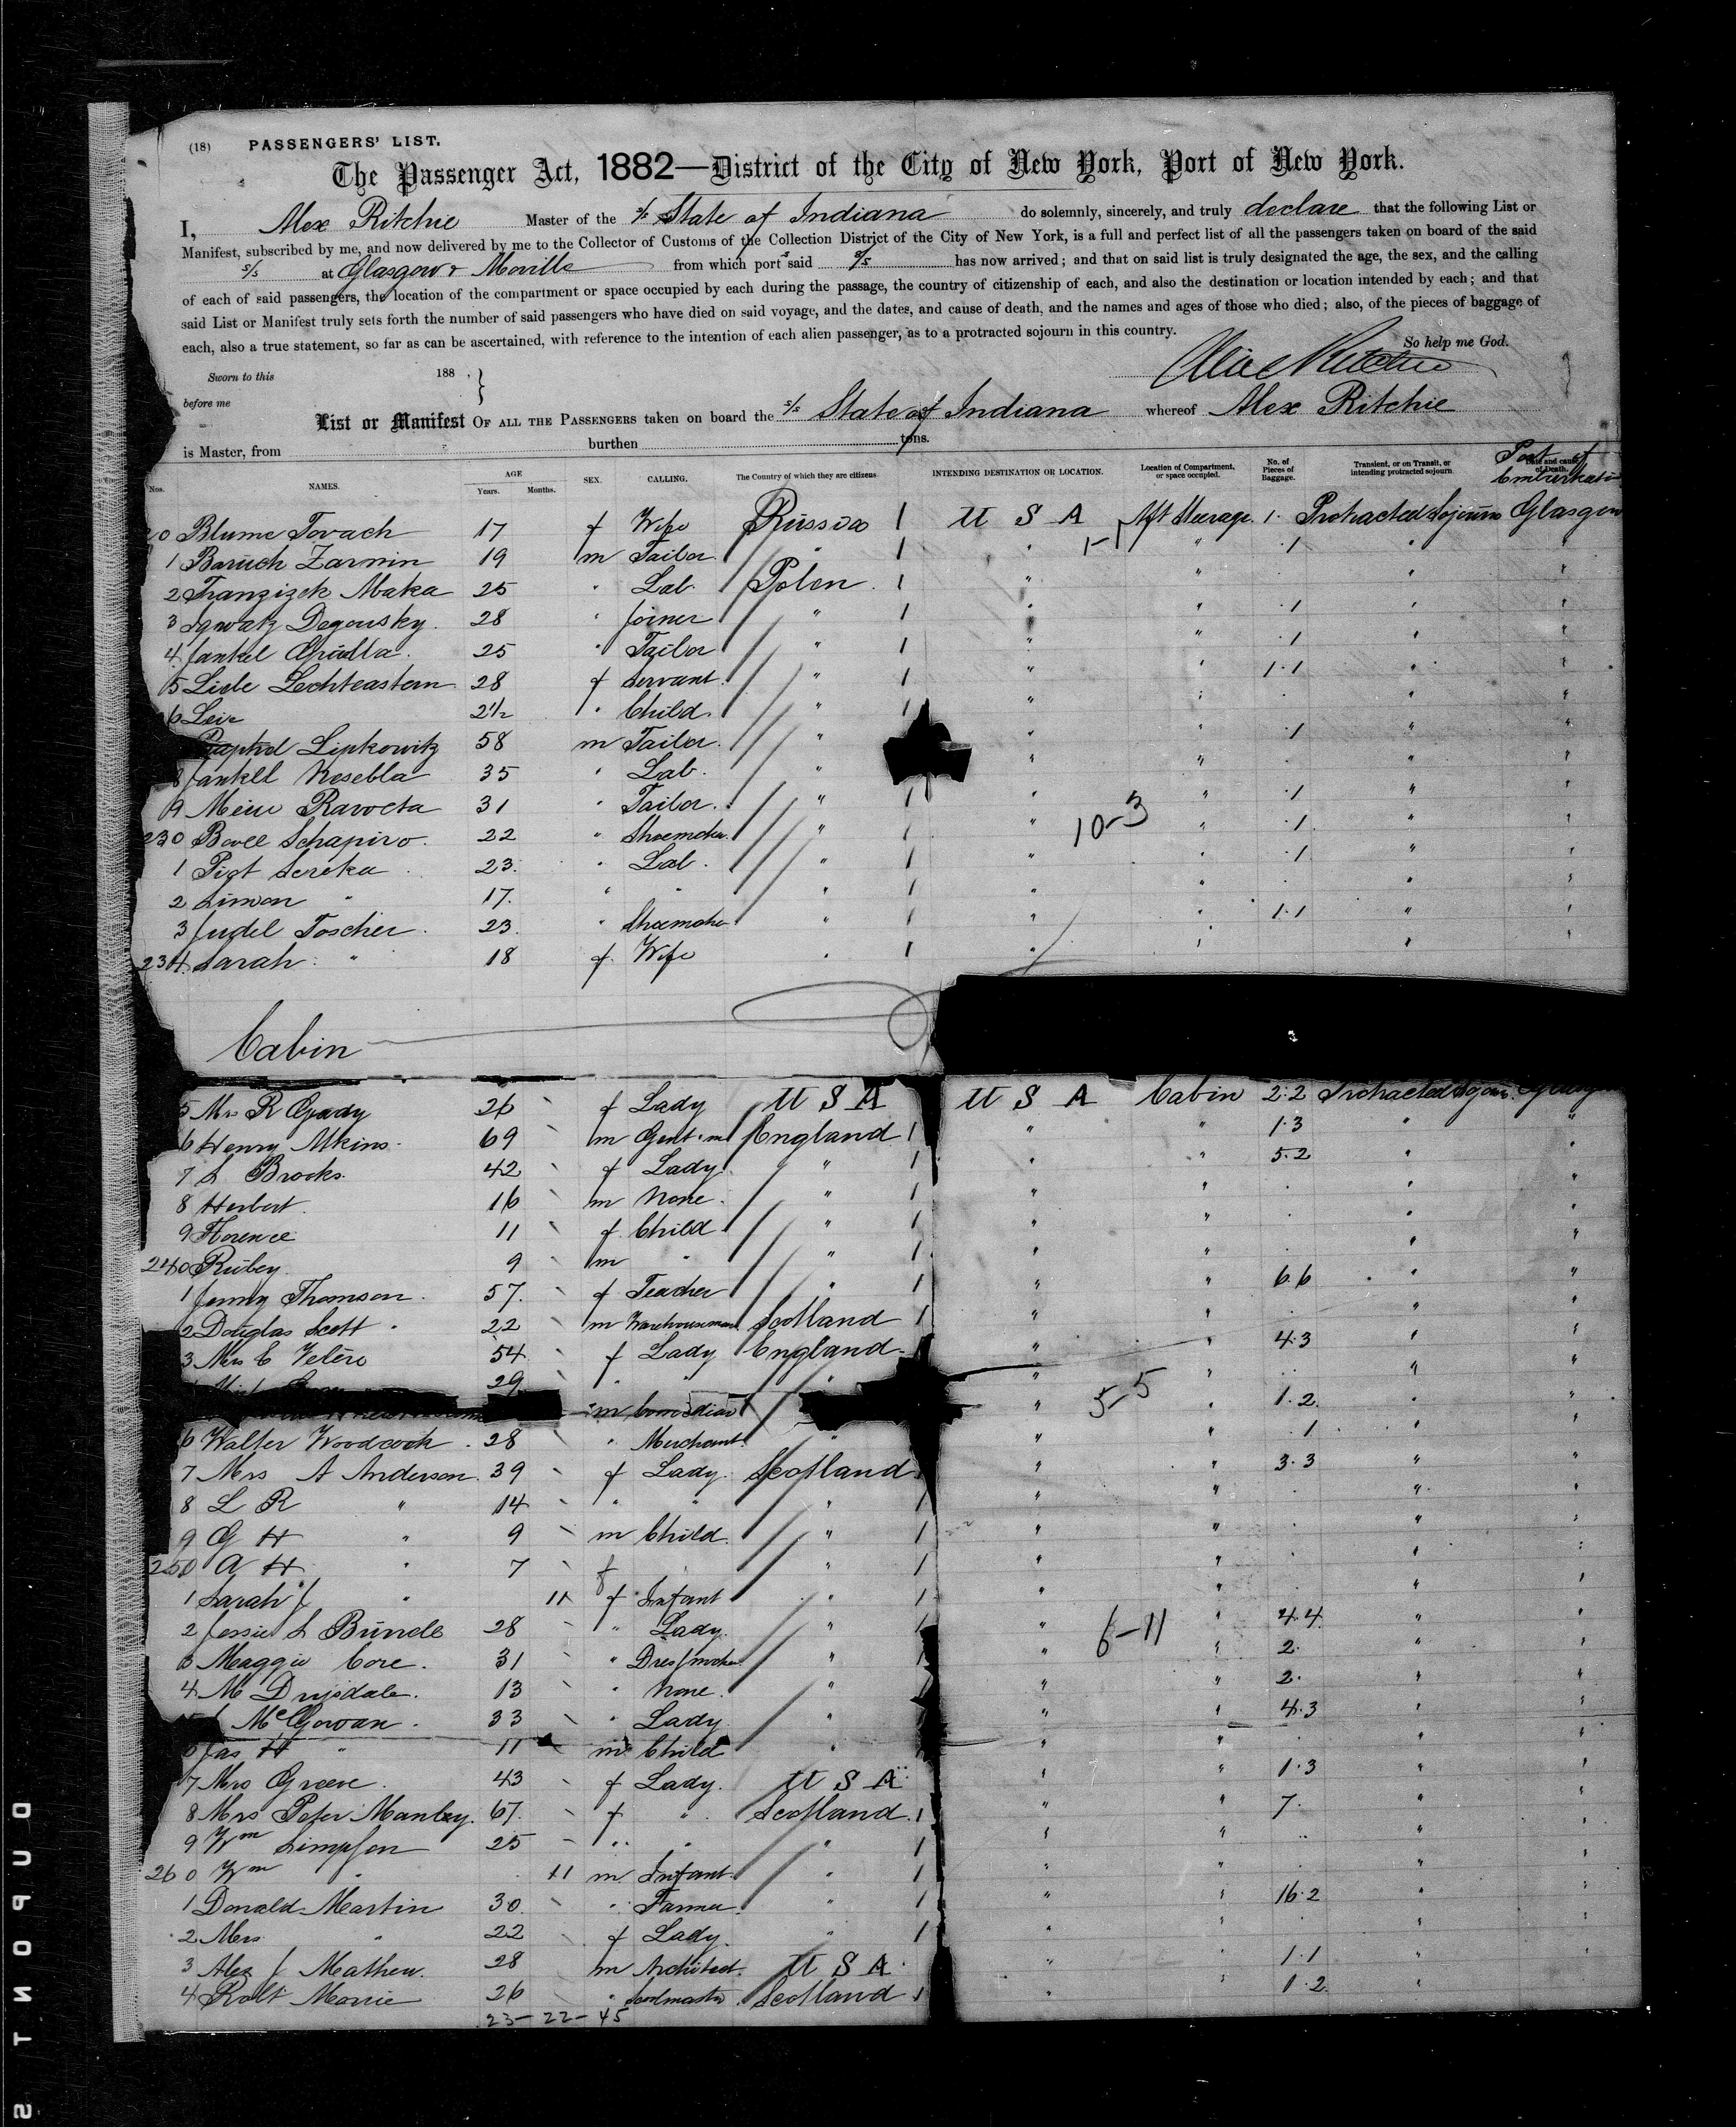 (18) PASSENGERS' LIST.
The Passenger Act, 1882—District of the City of New York, Port of New York.
I, Alex Ritchie Master of the S/S State of Indiana do solemnly, sincerely, and truly declare that the following List or
Manifest, subscribed by me, and now delivered by me to the Collector of Customs of the Collection District of the City of New York, is a full and perfect list of all the passengers taken on board of the said
S/S at Glasgow & Moville from which port s said S/S has now arrived; and that on said list is truly designated the age, the sex, and the calling
of each of said passengers, the location of the compartment or space occupied by each during the passage, the country of citizenship of each, and also the destination or location intended by each; and that
said List or Manifest truly sets forth the number of said passengers who have died on said voyage, and the dates, and cause of death, and the names and ages of those who died; also, of the pieces of baggage of
each, also a true statement, so far as can be ascertained, with reference to the intention of each alien passenger, as to a protracted sojourn in this country.
So help me God.
Alex Ritchie
Sworn to this 188 ,
before me
List or Manifest OF ALL THE PASSENGERS taken on board the S/S State of Indiana whereof Alex Ritchie
is Master, from burthen tons.
Nos. NAMES. AGE Years. Months. SEX. CALLING. The Country of which they are citizens INTENDING DESTINATION OR LOCATION. Location of Compartment, or space occupied. No. of Pieces of Baggage. Transient, or on Transit, or intending protracted sojourn Date and cause of Death. Port of Embarkati
0 Blume Tovach 17 f Wife Russia 1 U S A Aft Steerage 1 Protracted Sojourn Glasgow
1 Baruch Zarmin 19 m Tailor " 1 " 1-1 " 1 " "
2 Franzizek Maka 25 " Lab. Polen 1 " " " "
3 Ignatz Degousky 28 " Joiner " 1 " " 1 " "
4 Jankel Grudla 25 " Tailor " 1 " " 1 " "
5 Lide Lechteastern 28 f Servant " 1 " " 1.1 " "
6 Leie 2½ " Child " 1 " " " "
Lipkowitz 58 m Tailor " " " 1 " "
8 Jankell Nesebla 35 " Lab. " " " " "
9 Meier Ravocta 31 " Tailor " 1 " " 1 " "
230 Bovll Schapiro 22 " Shoemaker " 1 " 10-3 " 1 " "
1 Piot Sereka 23 " Lab. " 1 " " 1 " "
2 Simon " 17 " " " 1 " " " "
3 Judel Toscher 23 " Shoemaker " 1 " " 1.1 " "
234 Sarah " 18 f Wife " 1 " " " "
Cabin
5 Mrs R Grady 26 f Lady U S A U S A Cabin 2.2 Protracted Sojourn Glasgow
6 Henry Atkins 69 m Gent.m England 1 " " 1.3 " "
7 S Brooks 42 f Lady " 1 " " 5.2 " "
8 Herbert 16 m None " 1 " " " "
9 Florence 11 f Child " 1 " " " "
240 Rubey 9 m " " 1 " " " "
1 Jenny Thomson 57 f Teacher " 1 " " 6.6 " "
2 Douglas Scott 22 m Warehouseman Scotland 1 " " " "
3 Mrs E Velere 54 f Lady England " " 4.3 " "
29 " " " " " " "
m Comedian " 5-5 " 1.2 " "
6 Walter Woodcock 28 " Merchant " " " 1 " "
7 Mrs A Anderson 39 f Lady Scotland " " 3.3 " "
8 L R " 14 " " " 1 " " " "
9 G H " 9 m Child " 1 " " " "
250 A H " 7 f " 1 " " " "
1 Sarah J " 11 f Infant " 1 " " " "
2 Jessie S Bundle 28 " Lady " 1 " 6-11 " 4.4 " "
3 Maggie Core 31 " Dressmaker " 1 " " 2 " "
4 M Drysdale 13 " None " " " 2 " "
McGowan 33 " Lady " " " 4.3 " "
6 Jas H " 11 m Child " " " " "
7 Mrs Greeve 43 f Lady U S A " " 1.3 " "
8 Mrs Peter Manley 67 f " Scotland 1 " " 7 " "
9 Wm Simpson 25 " " " 1 " " " "
260 Wm " 11 m Infant " 1 " " " "
1 Donald Martin 30 " Farmer " 1 " " 16.2 " "
2 Mrs " 22 f Lady " 1 " " " "
3 Alex J Mathew 28 m Architect U S A " " 1.1 " "
4 Robt Morrie 26 " Scotland 1 " " 1.2 "
23-22-45
DUPONT S